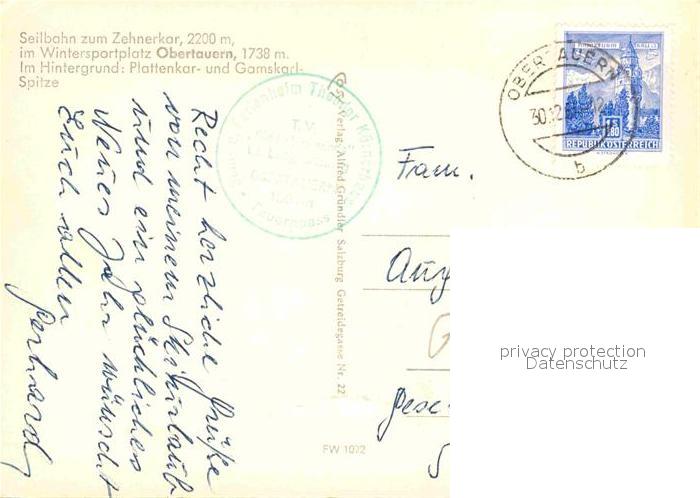 Seilbahn zum Zehnerkar, 2200 m,
im Wintersportplatz Obertauern, 1738 m.
Im Hintergrund: Plattenkar- und Gamskarl-
Spitze
Recht herzliche Grüße
von meinem Skiurlaub
und ein glückliches
Neues Jahr wünscht
Euch allen
Gerhard
Tauernpass
Verlag: Alfred Gründler Salzburg Getreidegasse Nr. 22
FW 1072
OBERTAUERN
30.12
b
REPUBLIK ÖSTERREICH
Fam.
privacy protection
Datenschutz